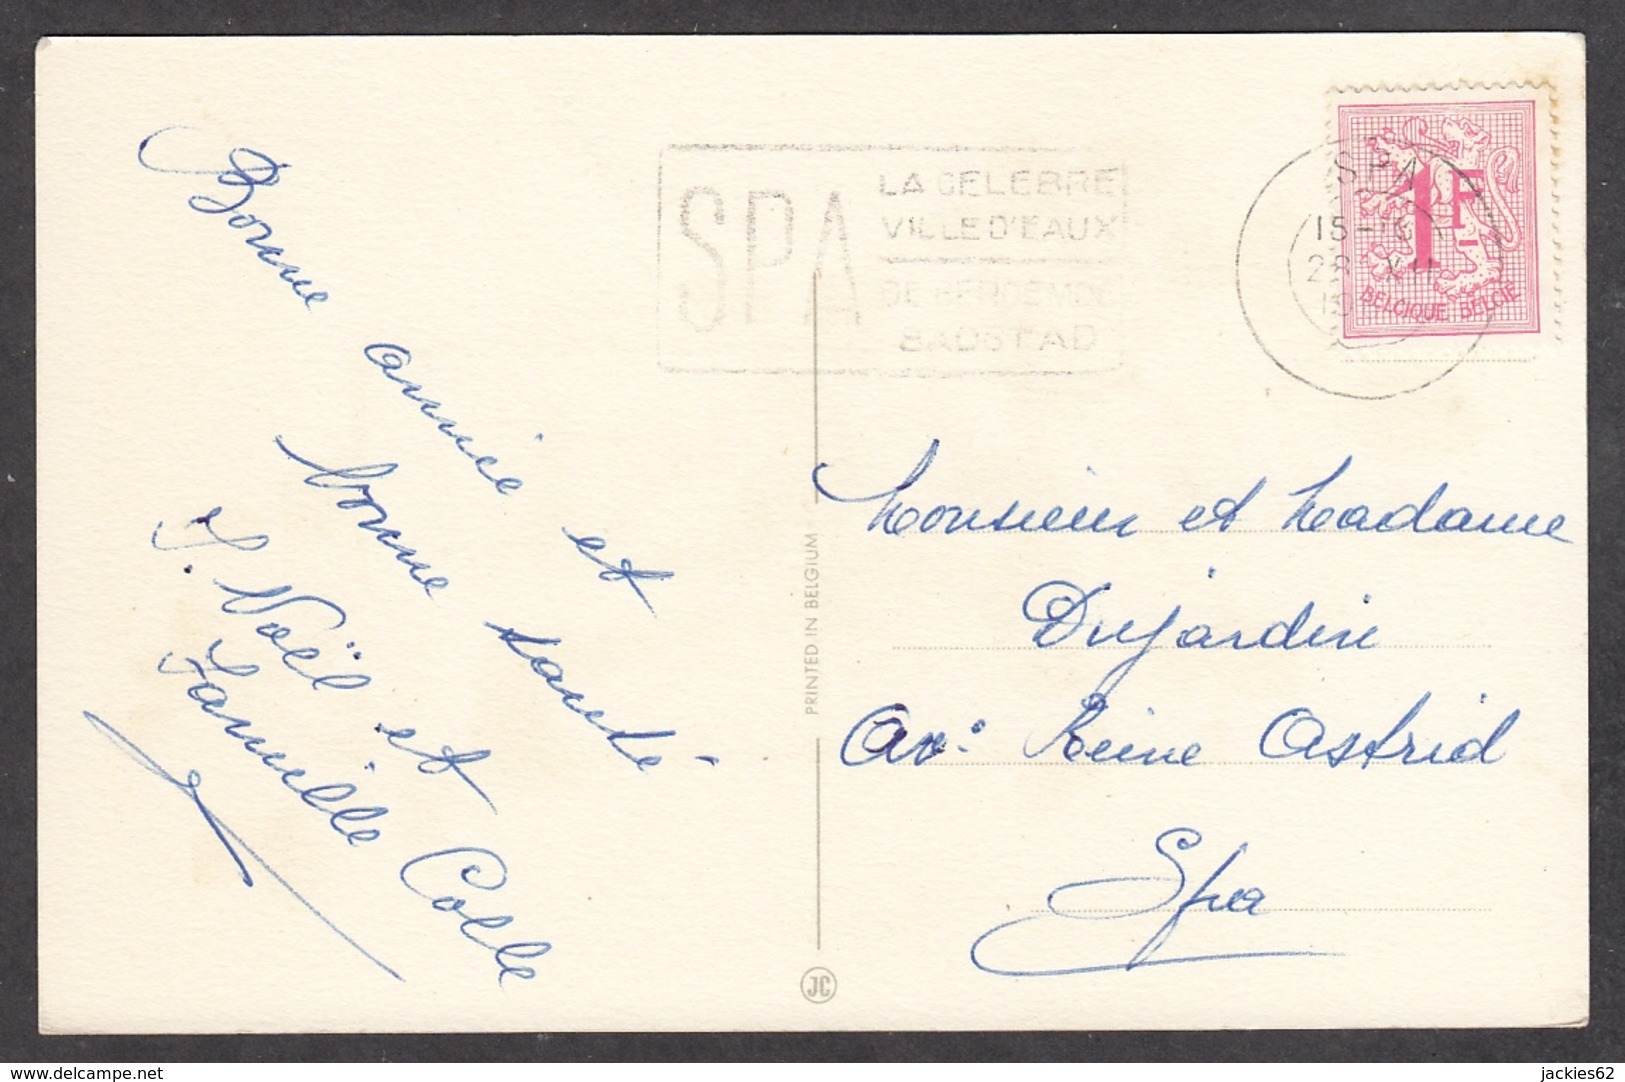 Bonne année et
bonne santé
J. Noël et
Famille Colle
SPA
LA CELEBRE
VILLE D'EAUX
DE BEROEMDE
BADSTAD
SPA
15-16
28 XII
1F
BELGIQUE BELGIË
Monsieur et Madame
Dujardin
Av. Reine Astrid
Spa
PRINTED IN BELGIUM
JC
www.delcampe.net
jackies62